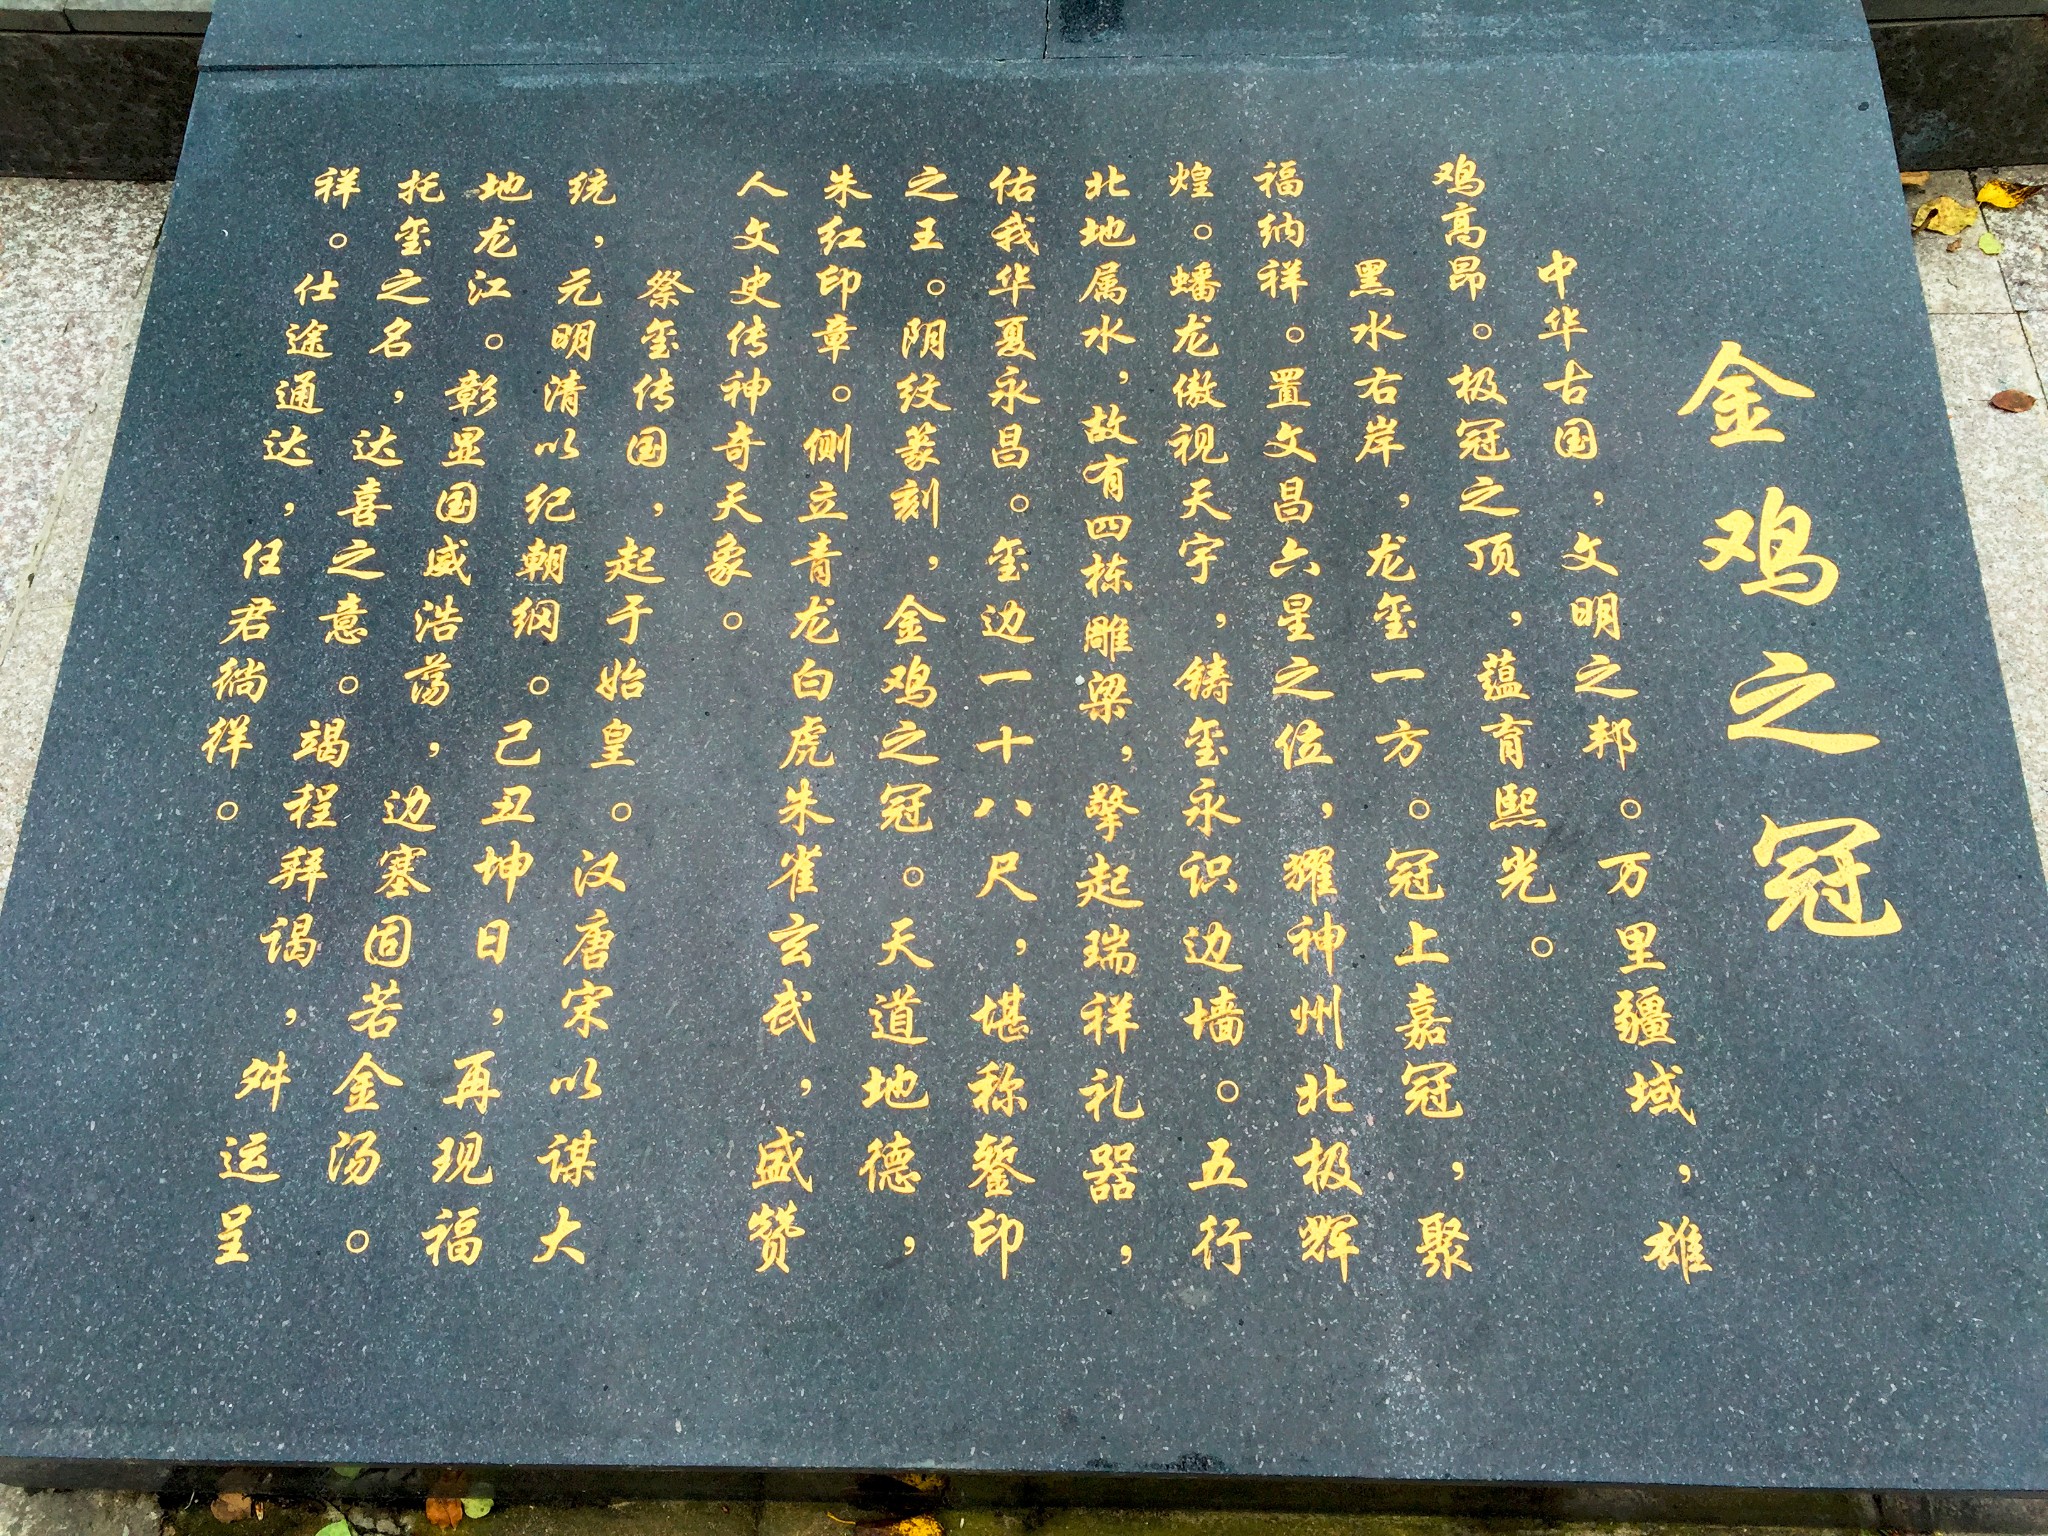 金鸡之冠
中华古国，文明之邦。万里疆域，雄
鸡高昂。极冠之顶，蕴育熙光。
黑水右岸，龙玺一方。冠上嘉冠，聚
福纳祥。置文昌六星之位，耀神州北极辉
煌。蟠龙傲视天宇，铸玺永识边墙。五行
北地属水，故有四栋雕梁，擎起瑞祥礼器，
佑我华夏永昌。玺边一十八尺，堪称錾印
之王。阴纹篆刻，金鸡之冠。天道地德，
朱红印章。侧立青龙白虎朱雀玄武，盛赞
人文史传神奇天象。
祭玺传国，起于始皇。汉唐宋以谋大
统，元明清以纪朝纲。己丑坤日，再现福
地龙江。彰显国威浩荡，边塞固若金汤。
托玺之名，达喜之意。竭程拜谒，舛运呈
祥。仕途通达，任君徜徉。